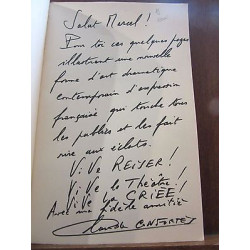 Salut Marcel !
Pour toi ces quelques pages
illustrant une nouvelle
forme d'art dramatique
contemporain d'expression
française qui touche tous
les publics et les fait
rire aux éclats.
ViVe REiYER !
ViVe le Théâtre !
ViVe La CRiÉE !
Avec une fidèle amitié